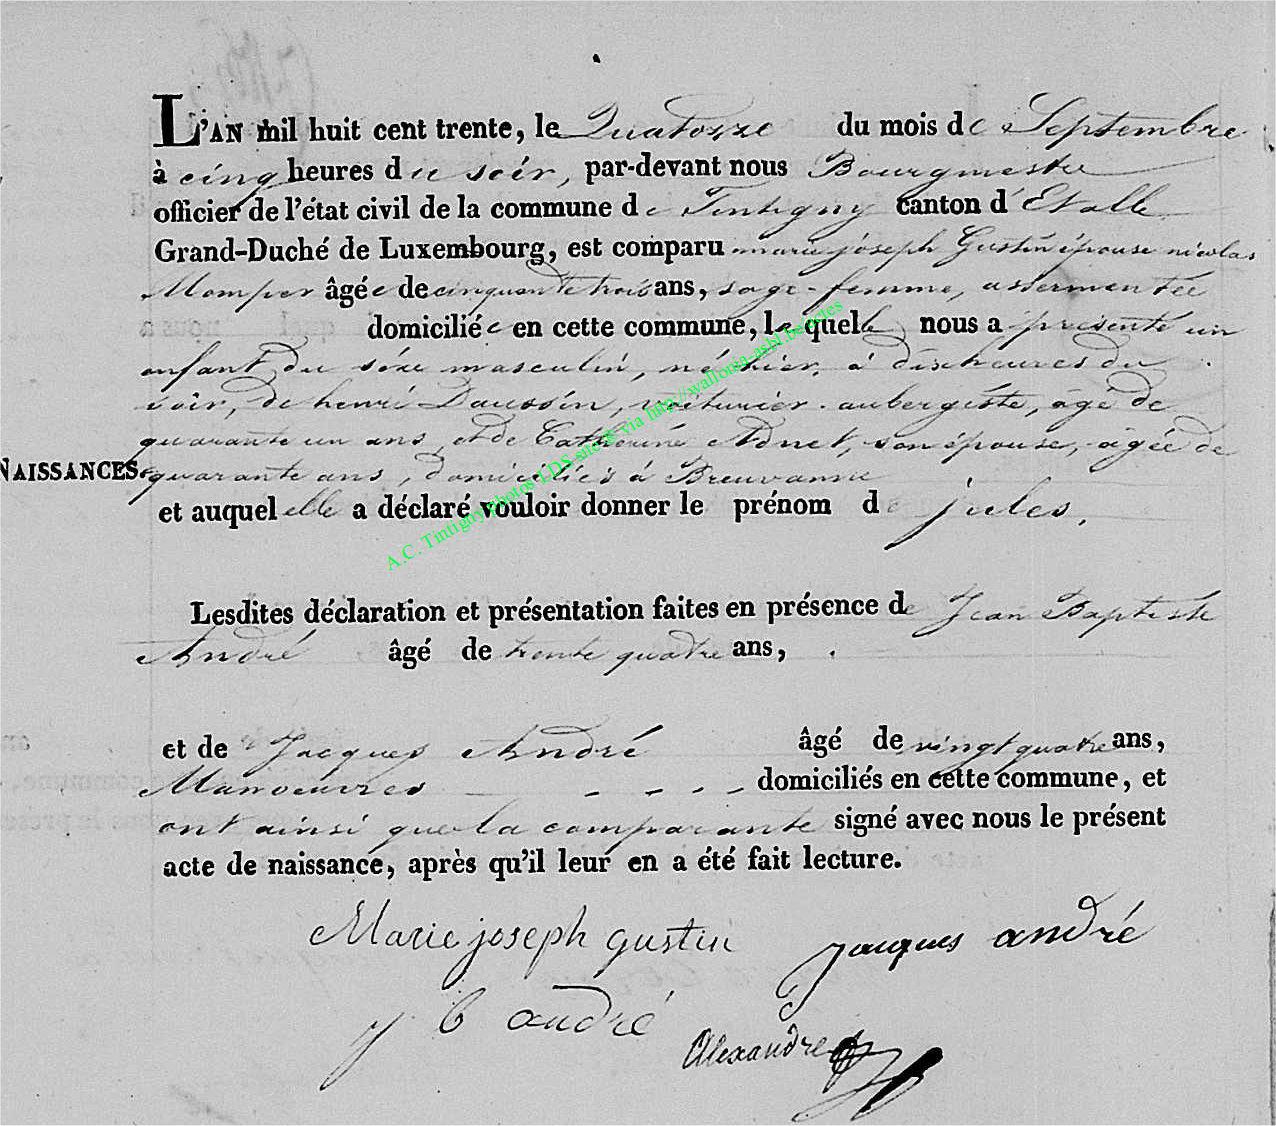 L'AN mil huit cent trente, le Quatorze du mois de Septembre
à cinq heures du soir, par-devant nous Bourgmestre
officier de l'état civil de la commune de Tintigny canton d'Etalle
Grand-Duché de Luxembourg, est comparu marie joseph Gustin épouse nicolas
Momper âgée de cinquante trois ans, sage-femme, assermentée
domiciliée en cette commune, laquelle nous a présenté un
enfant du séxe masculin, né hier, à dix heures du
soir, de henri Daussin, voiturier-aubergiste, âgé de
quarante un ans, et de Catherine Adnet, son épouse, âgée de
NAISSANCES. quarante ans, domiciliés à Breuvanne
et auquel elle a déclaré vouloir donner le prénom de jules.
A.C. Tintigny photos LDS site via http://wallonia-asbl.be/actes
Lesdites déclaration et présentation faites en présence de Jean Baptiste
André âgé de trente quatre ans,
et de Jacques André âgé de vingt quatre ans,
Manoeuvres domiciliés en cette commune, et
ont ainsi que la comparante signé avec nous le présent
acte de naissance, après qu'il leur en a été fait lecture.
Marie joseph gustin jacques andré
j b andré
Alexandre